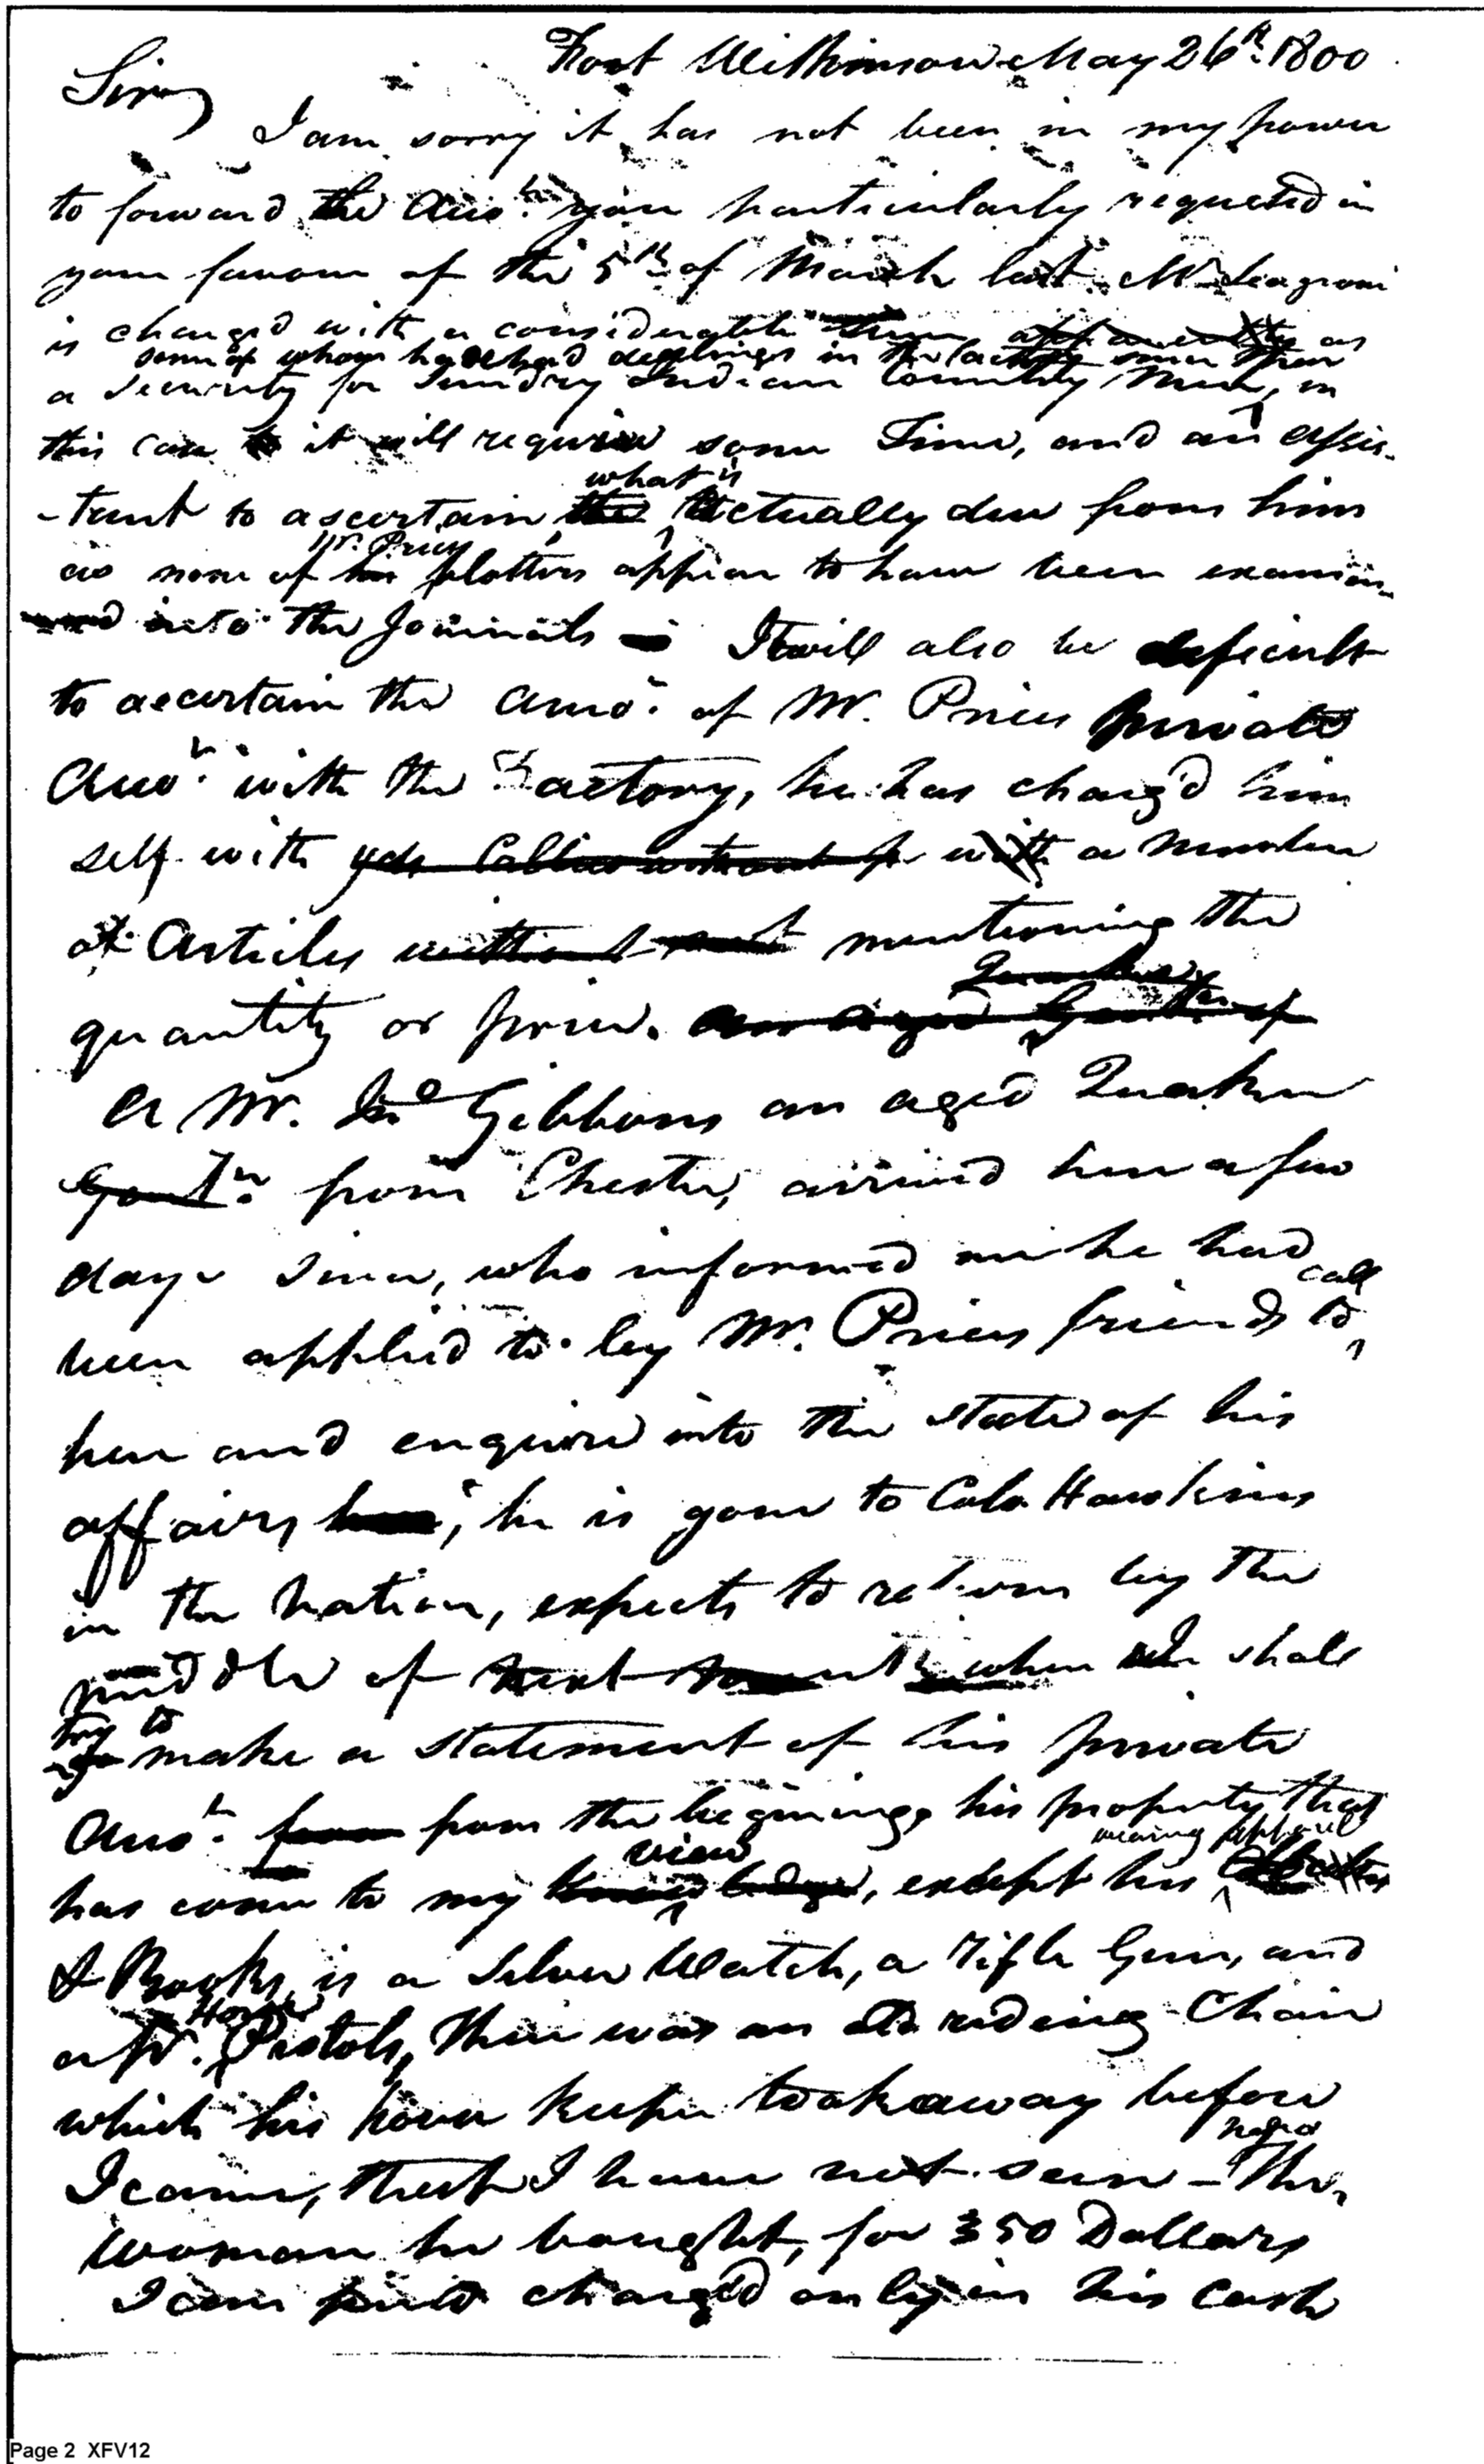 Fort Wilkinson May 26th 1800
Sir,
I am sorry it has not been in my power
to forward the Acco.t you particularly requested in
your favour of the 5th of March last. Mr. Seagrove
is charged with a considerable as
some of whom have had dealings in the factory since then
a Security for Sundry Indian Country Men, in
this case it will require some Time, and an assis-
what is
-tant to ascertain the actually due from him
Mr. Prices
as none of his blotters appear to have been examin-
ed into the Journals It will also be deficult
to ascertain the amo.t of Mr. Prices private
Acco.t with the Factory, he has charg'd him
self with yds Callico without pr with a number
of Articles without mentioning the
Quaker
quantity or price. an aged Gentn. of
A Mr. Jno Gibbons an aged Quaker
Gentn. from Chester, arrived here a few
days since, who informed me he had
call
been applied to by Mr. Prices friends to
here and enquire into the state of his
affairs here, he is gone to Colo. Hawkins
in the nation, expects to return by the
middle of next month when I shall
try to
make a statement of his private
Acco.t from from the begining, his property that
view wearing apparel
has come to my knowledge, except his Cloaths
& Books, is a Silver Watch, a rifle Gun, and
Horse
a pr. Pistols, there was an old riding Chair
which his house keeper took away before
negro
I came, that I have not seen - The
woman he bought, for 350 Dollars
I charged only in his Cash